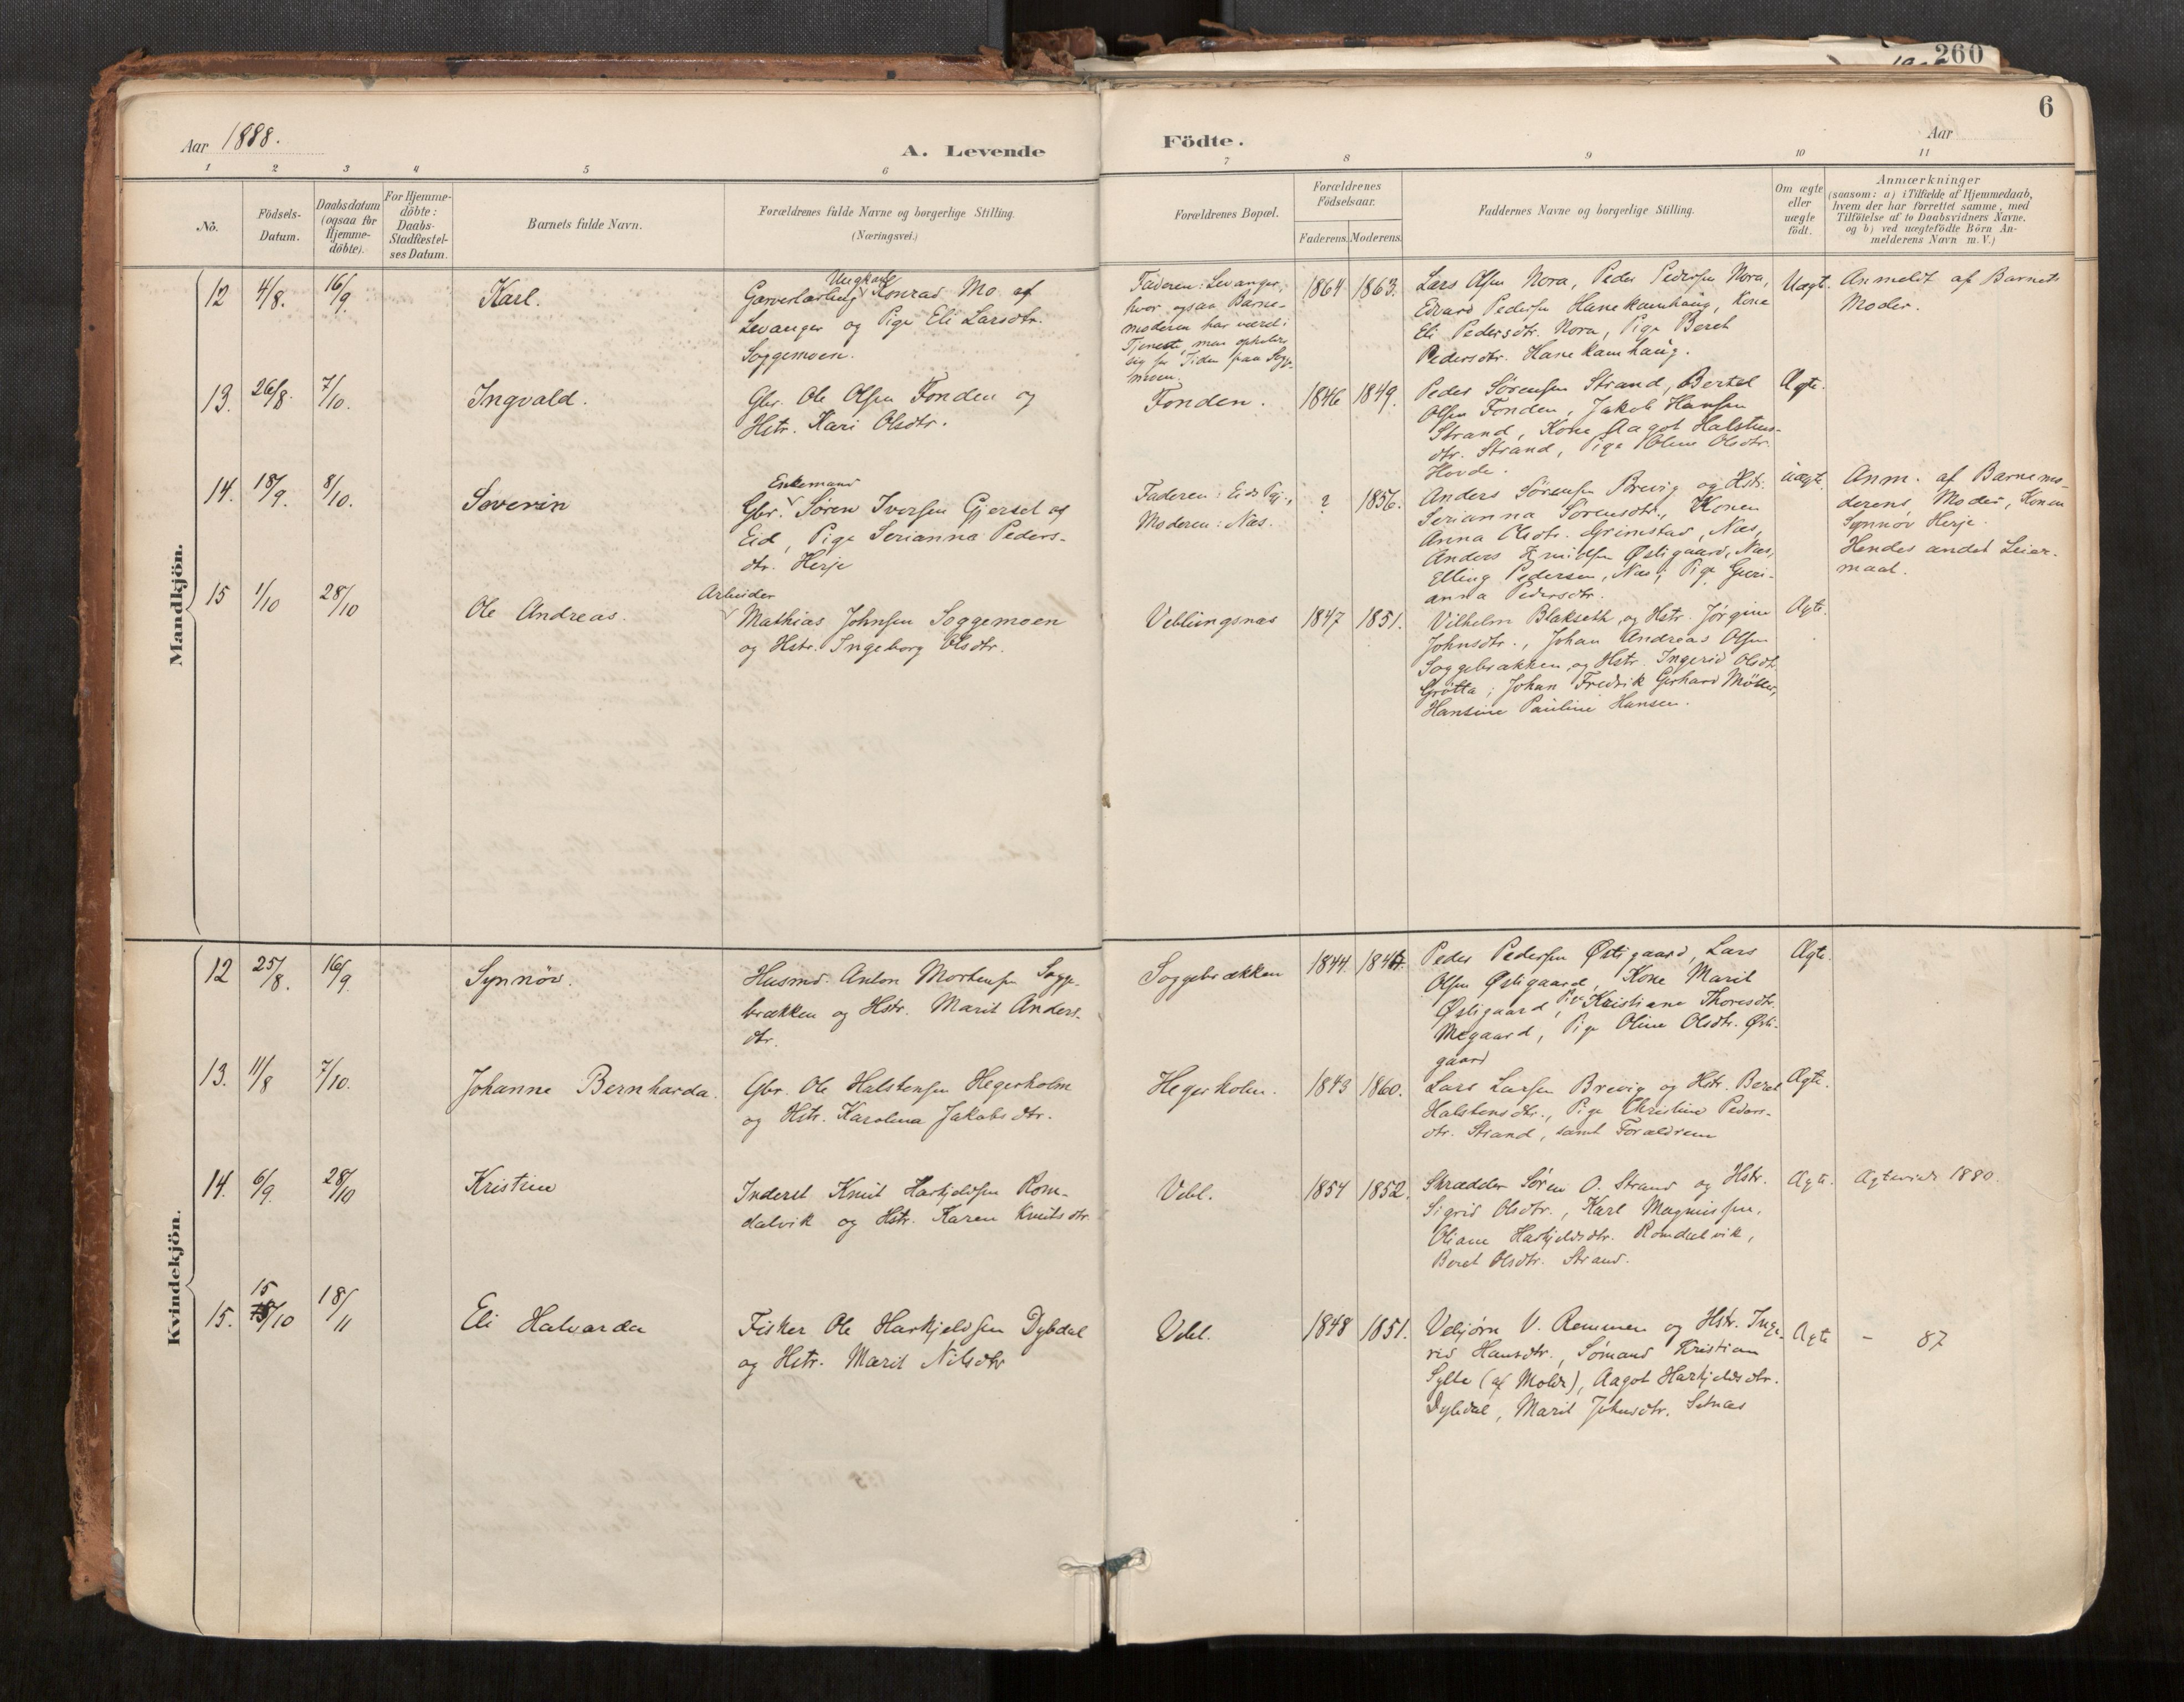 260
6
Aar 1888.
A. Levende
Födte.
Aar
1 2 3 4 5 6 7 8 9 10 11
No.
Födsels-
Datum.
Daabsdatum
(ogsaa för
Hjemme-
döbte).
For Hjemme-
döbte:
Daabs-
Stadfæstel-
ses Datum.
Barnets fulde Navn.
Forældrenes fulde Navne og borgerlige Stilling.
(Næringsvei.)
Forældrenes Bopæl.
Forældrenes
Födselsaar.
Faderens. Moderens.
Faddernes Navne og borgerlige Stilling.
Om ægte
eller
uægte
födt.
Anmærkninger
(saasom: a) i Tilfælde af Hjemmedaab,
hvem der har forrettet samme, med
Tilföielse af to Daabsvidners Navne,
og b) ved uægtefödte Börn An-
melderens Navn m. V.)
Mandkjön.
12 4/8. 16/9. Karl.
Ungkarl
Garverlærling Konrad Mo af
Levanger og Pige Eli Larsdtr.
Soggemoen.
Faderen: Levanger,
hvor ogsaa Barne-
moderen har været i
Tjeneste, men opholder
sig for Tiden paa Sogge-
moen.
1864 1863.
Lars Olsen Nora, Peder Pedersen Nora,
Edvard Pedersen Hanekamhaug, Kone
Eli Pedersdtr. Nora, Pige Beret
Pedersdtr. Hanekamhaug.
Uægt.
Anmeldt af Barnets
Moder.
13. 26/8. 7/10. Ingvald.
Gbr. Ole Olsen Fonden og
Hstr. Kari Olsdtr.
Fonden.
1846 1849.
Peder Sörensen Strand, Bertel
Olsen Fonden, Jakob Hansen
Strand, Kone Aagot Halstens-
dtr. Strand, Pige Oline Olsdtr.
Hovde.
Ægte.
14. 18/9. 8/10. Severin
Enkemand
Gbr. Sören Iversen Gjerset af
Eid, Pige Serianna Peders-
dtr. Herje
Faderen: Eids Pgj.,
Moderen: Næs.
? 1856.
Anders Sörensen Brevig og Hstr.
Serianna Sörensdtr., Konen
Anna Olsdtr. Grimstad, Næs,
Anders Østigaard, Næs,
Elling Pedersen, Næs, Pige Guri-
anna Pedersdtr.
uægte.
Anm. af Barnemo-
derens Moder, Konen
Synnöv Herje.
Hendes andet Leier-
maal.
15 1/10 28/10 Ole Andreas.
Arbeider
Mathias Johnsen Soggemoen
og Hstr. Ingeborg Olsdtr.
Veblungsnæs
1847 1851.
Vilhelm Blakseth og Hstr. Jörgine
Johnsdtr., Johan Andreas Olsen
Soggebrækken og Hstr. Ingerid Olsdtr.
Grötta, Johan Fredrik Gerhard Möller,
Hansine Pauline Hansen.
Ægte.
Kvindekjön.
12 25/8. 16/9. Synnöv.
Husmd. Anton Mortensen Sogge-
brækken og Hstr. Marit Anders-
dtr.
Soggebrækken
1844.
Peder Pedersen Østigaard, Lars
Olsen Østigaard, Kone Marit
Østigaard, Pige Kristiane Thoresdtr.
Megaard, Pige Oline Olsdtr. Østi-
gaard
Ægte.
13. 11/8 7/10. Johanne Bernharda.
Gbr. Ole Halstensen Hegerholm
og Hstr. Karolina Jakobsdtr.
Hegerholm.
1843 1860.
Lars Larsen Brevig og Hstr. Beret
Halstensdtr., Pige Christine Peders-
dtr. Strand, samt Forældrene
Ægte.
14. 6/9. 28/10 Kristine
Inderst Knut Harkjeldsen Rom-
dalvik og Hstr. Karen Knutsdtr.
Vebl.
1854 1852.
Skrædder Sören O. Strand og Hstr.
Sigrid Olsdtr., Karl Magnussen,
Oliane Harkjeldsdtr. Romdalvik,
Beret Olsdtr. Strand.
Ægte.
Ægteviede 1880.
15. 15/10 18/11 Eli Halvarda
Fisker Ole Harkjeldsen Dybdal
og Hstr. Marit Nilsdtr
Vebl.
1848 1851.
Vebjörn V. Remmen og Hstr. Inge-
rid Hansdtr., Sömand Kristian
Sylte (af Molde), Aagot Harkjeldsdtr.
Dybdal, Marit Johnsdtr. Setnæs
Ægte
- 87